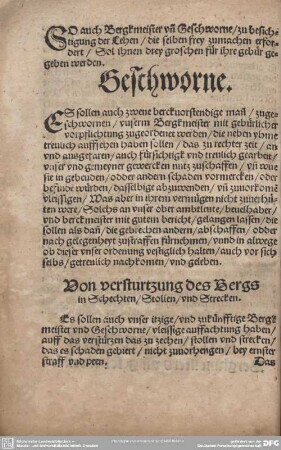 SO auch Bergkmeister vñ Geschworne / zu besich-
tigung der Lehen / die selben frey zumachen erfor-
dert / Sol ihnen drey groschen für ihre gebür ge-
geben werden.
Geschworne.
ES sollen auch zwene berckuorstendige mañ / zuge-
schwornen / vnserm Bergkmeister mit gebürlicher
vorpflichtung zugeordenet werden / die neben yhme
treulich auffsehen haben sollen / das zu rechter zeit / an
vnd ausgefaren / auch fürsichtigk vnd treulich gearbeit /
vnser vnd gemeyner gewercken nutz zuschaffen / vñ wue
sie in gebeuden / odder andern schaden vormercken / oder
befinden würden / dasselbige abzuwenden / vñ zuuorkomē
vleissigen / Was aber in ihrem vermügen nicht zuuerhü-
ten were / Solchs an vnser ober ambtleute /
vnd berckmeister mit gutem bericht / gelangen lassen / die
sollen als dañ / die gebrechen andern / abschaffen / odder
nach gelegenheyt zustraffen fürnehmen / vnnd in alwege
ob dieser vnser ordenung vestiglich halten / auch vor sich
selbs / getreulich nachkomen / vnd geleben.
Von versturtzung des Bergs
in Schechten / Stollen / vnd Strecken.
Es sollen auch vnser itzige / vnd zukünfftige Bergk
meister vnd Geschworne / vleissige auffachtung haben /
auff das verstürtzen das zu zechen / stollen vnd strecken /
das es schaden gebiert / nicht zuuorhengen / bey ernster
straff vnd peen.
Das